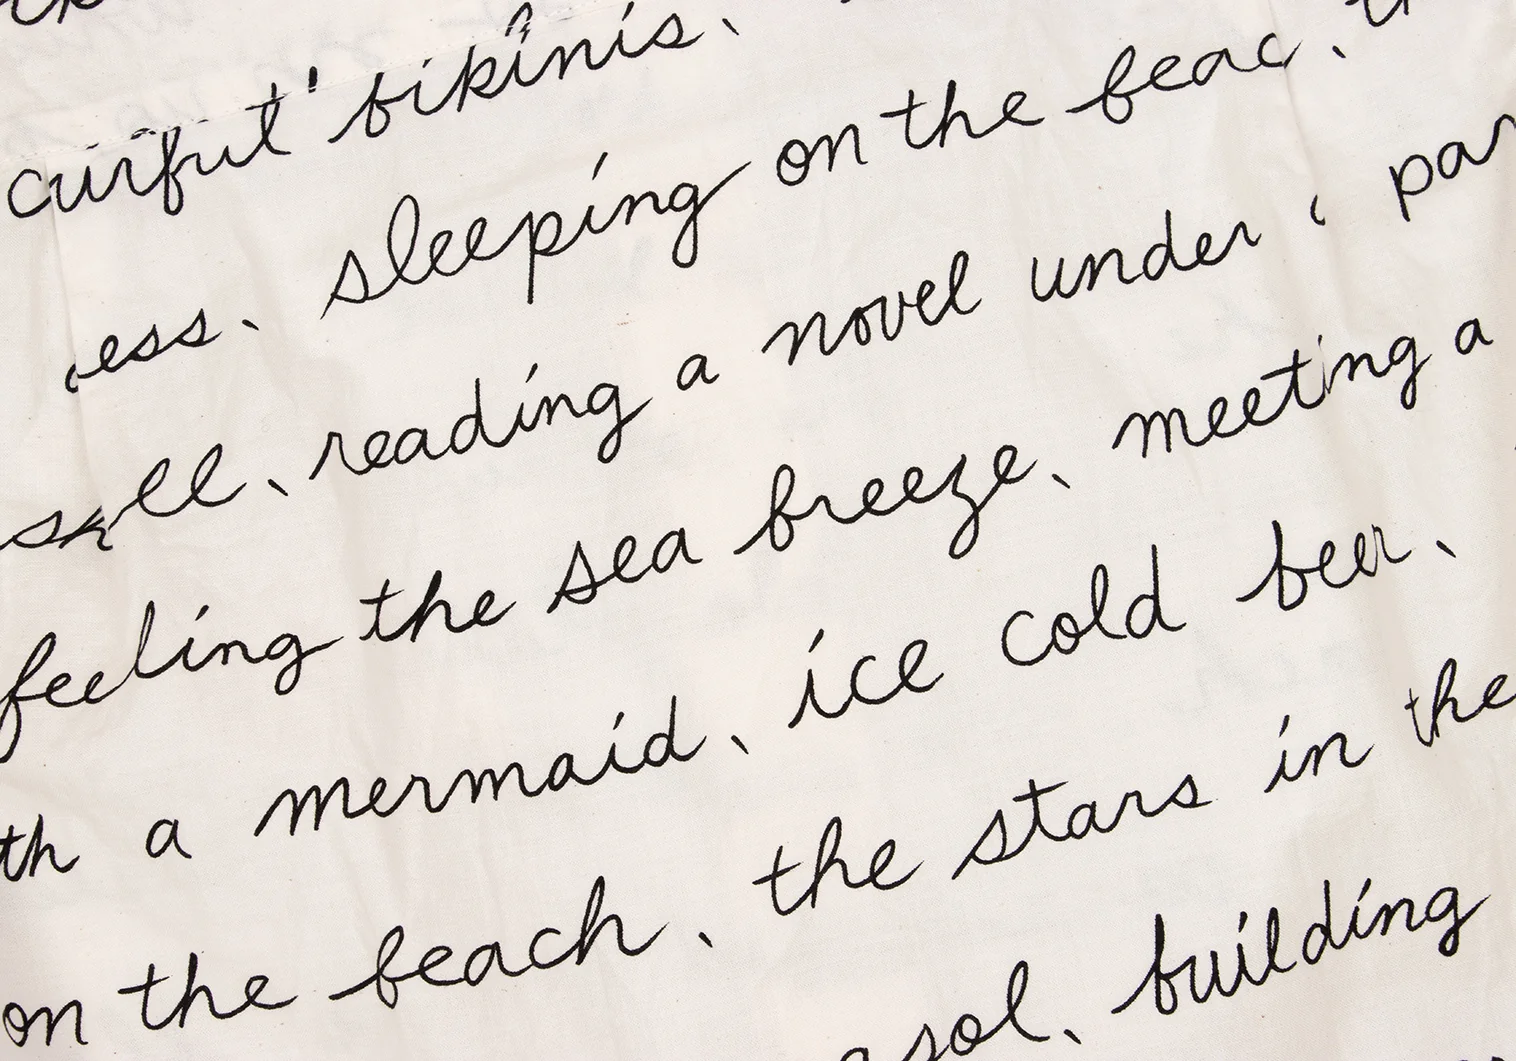 bikinis,
ess, sleeping on the beac,
reading a novel under
feeling the sea breeze, meeting a
th a mermaid, ice cold beer,
on the beach, the stars in the
asol, building